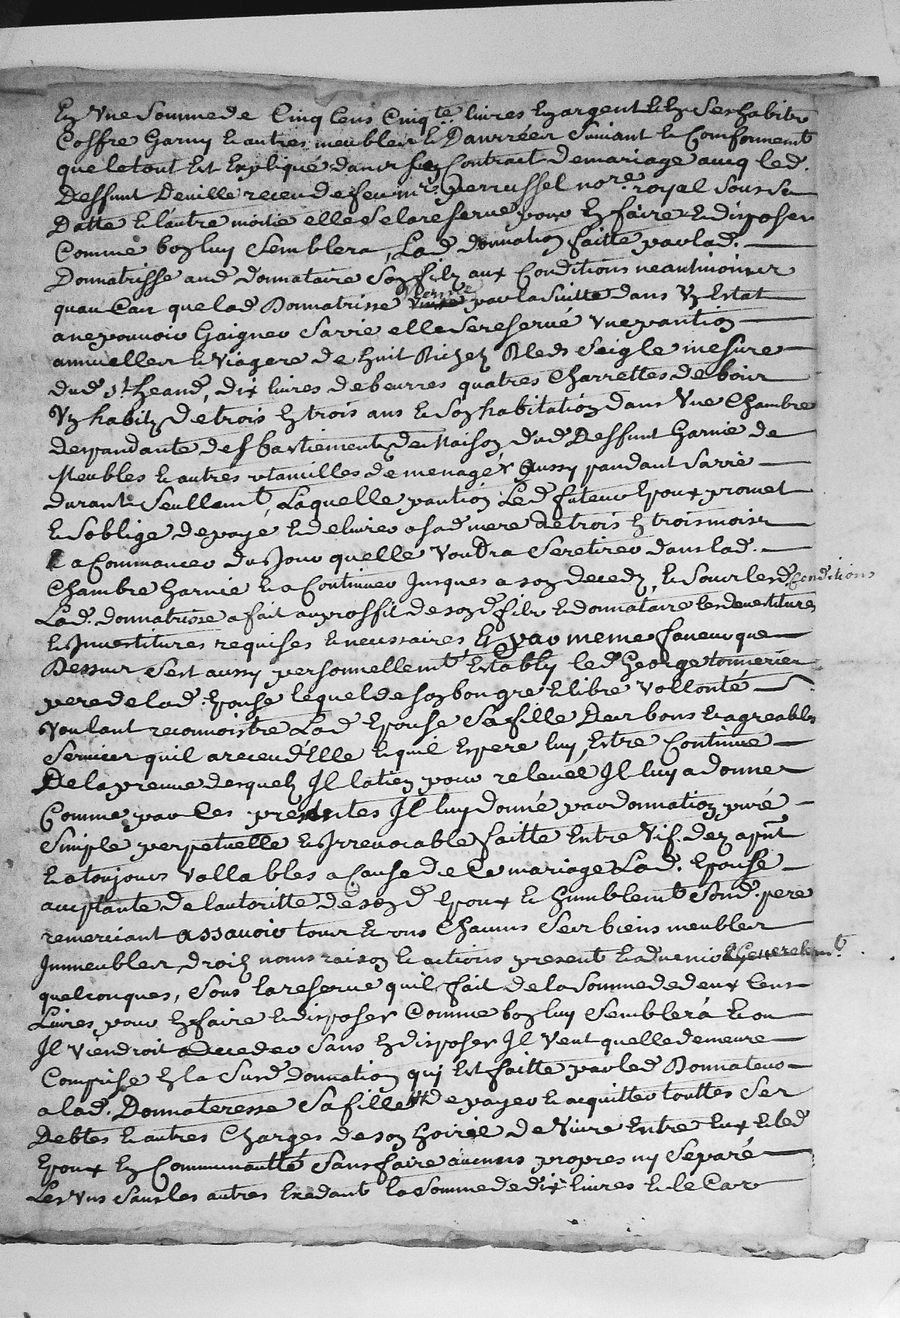 En Une Somme de Cinq Cens Cinqte livres En argent Et En Ses habits
Coffre Garny Et autres meubles Et Danrrées Suivant Et Conformemt
que le tout Est Expliqué dans Contrait de mariage avcq led.
Deffunt Deville receu de feu mre perrussel nore royal Sous Sa
Datte Et l'autre moitie elle Se la reserve pour En faire Et disposer
Comme bon luy Semblera, Lad donnation faitte par lad.
Donnatrisse aud donnataire Son fils aux Conditions neantmoins
quau Cas que lad Donnatrisse vinse par la Suitte dans Un Estat
a ne pouvoir Gaigner Sa vie elle Se reserve Une pantion
annuelle Et Viagere de huit Bichets Bled Seigle mesure
dud St heand, dix livres de beurres quatres Charrettes de bois
Un habit de trois En trois ans Et Son habitation dans Une Chambre
despandante des Bastiements de Maison dud Deffunt Garnie de
Meubles Et autres utancilles de menager Aussy pandant Sa vie
durant Seullemt, Laquelle pantion Led futeur Epoux promet
Et Soblige de paye Et delivrer a Sad mere de trois En trois mois
Et a Commancer du Jour quelle Voudra Se retirer dans lad.
Chambre Garnie Et a Continuer Jusques a Son deceds, Et Sour lesd. Conditions
Lad. donnatrisse a fait au proffit de Son d fils Et donnataire les devestitures
Et Jnvestitures requises Et necessaires, Et par meme faveur que
Dessus Sest aussy personnellemt Estably led George tonnerier
pere de lad. Epouse lequel de Son bon gre Et libre Vollonté
Voulant reconnoistre Lad Epouse Sa fille Des bons Et agreables
Services quil a receu d'Elle Et quil Espere luy Estre Continue
De la preuve desquels Jl la tien pour relevée Jl luy a donne
Comme par les presantes Jl luy donne par donnation puré
Simple perpetuelle Et Jrrevocable faitte Entre Vif dez apnt
Et a toujours Vallables a Cause de Ce mariage Lad. Epouse
acceptante de l'autoritte de Son d Epoux Et humblemt Sond. pere
remerciant assavoir tous Et vns Chacuns Ses biens meubles
Jmmeubles, droits noms raisons Et actions present Et advenir Et Generelemt.
quelconques, Sous la reserve quil fait de la Somme de deux Cens
Livres pour En faire Et disposer Comme bon luy Semblerá Et ou
Jl Viendroit a deceder Sans En disposer Jl Veut quelle demeure
Comprise En la Susd donnation qui Est faitte par led Donnateur
a lad. Donnateresse Sa fille de payer Et acquitter touttes Ses
Debtes Et autres Charges de Son hoirie de Vivre Entre Eux Et led
Epoux En Communautté Sans faire aucuns propres ny Separé
Les Uns Sans les autres Exedant la Somme de dix livres Et le Cas